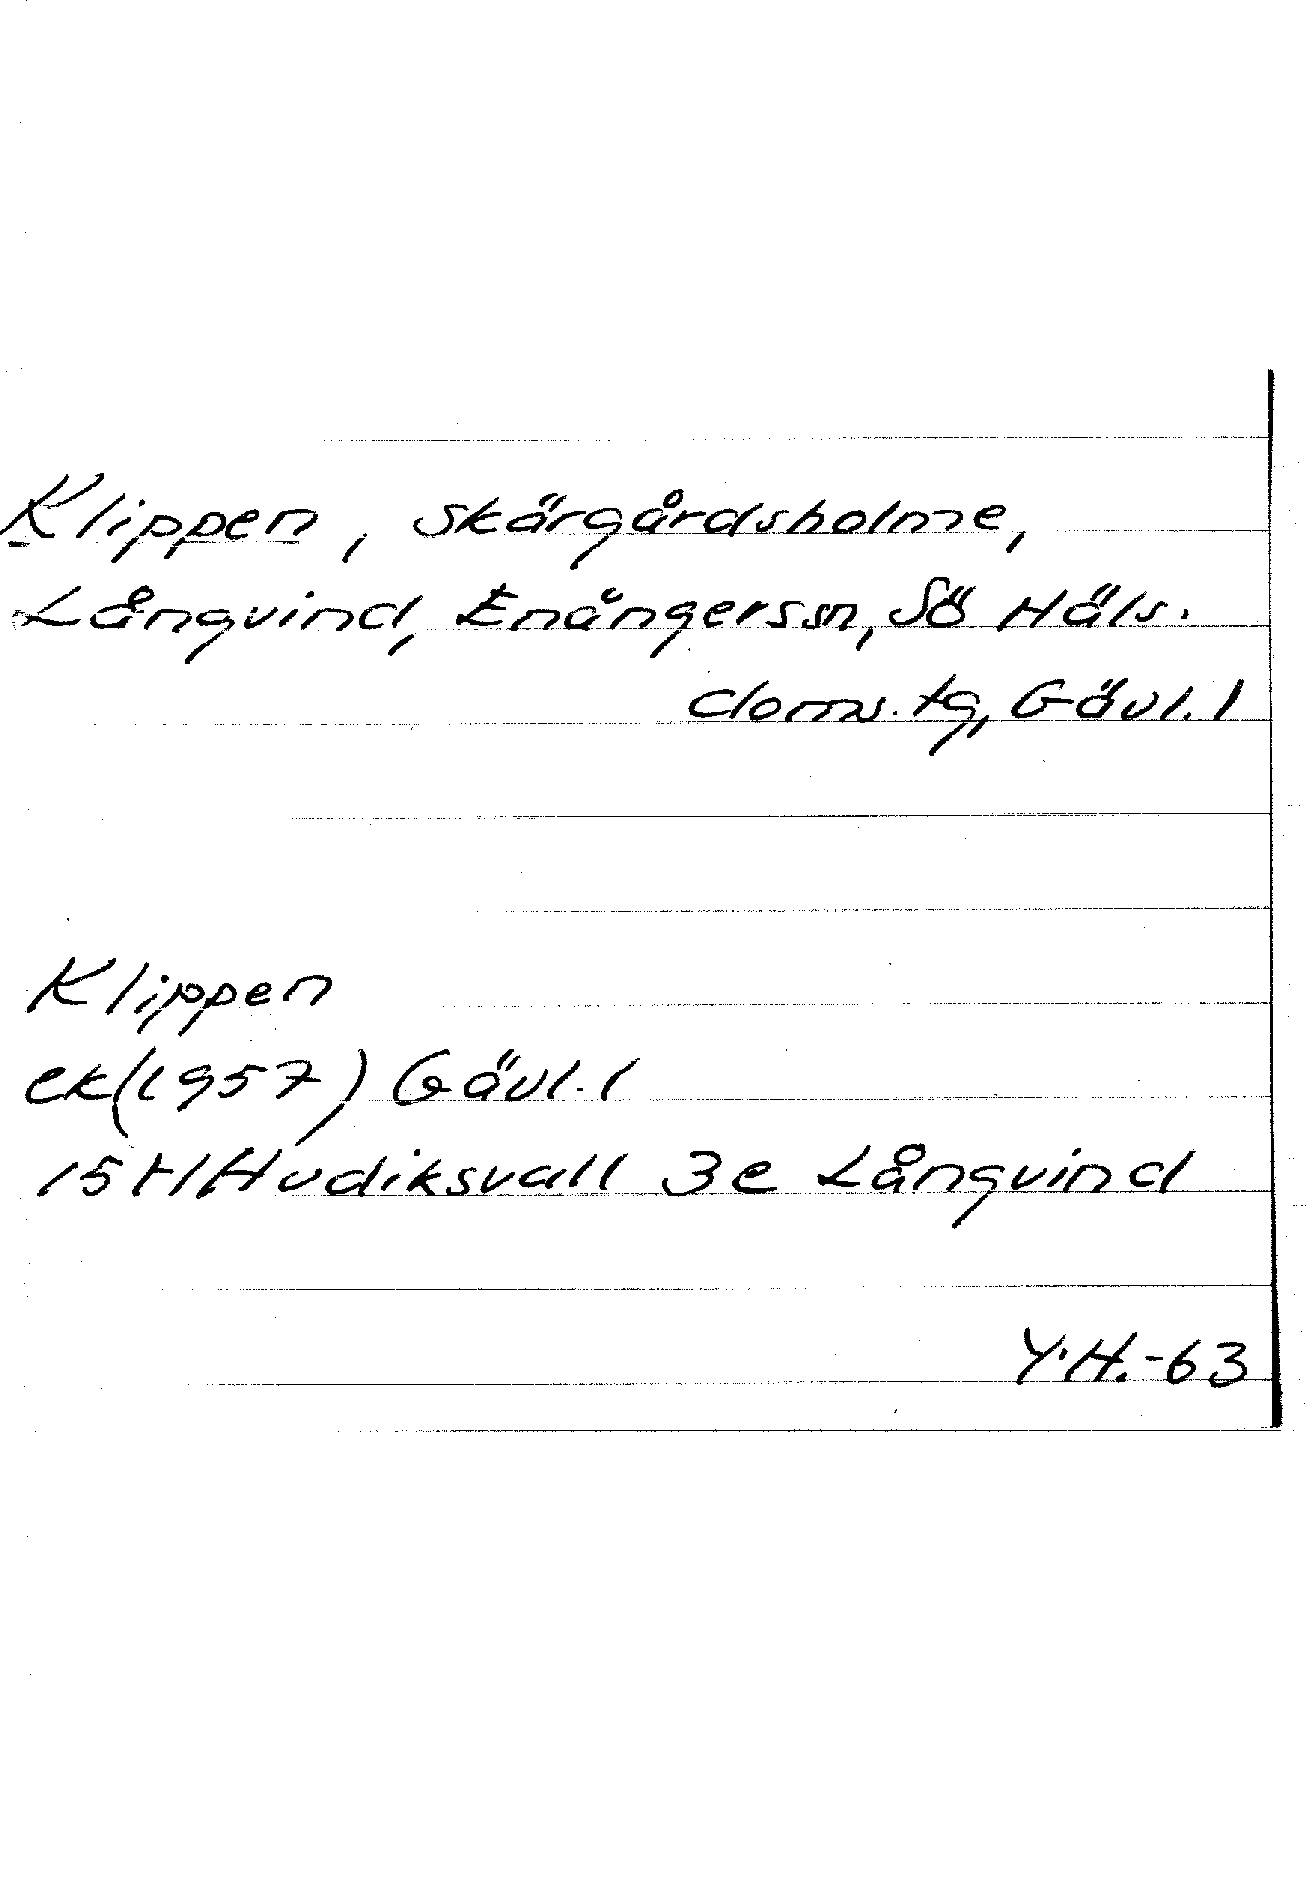 Klippen, skärgårdsholme,
Långvind, Enångerssn, Sö Häls.
doms. tg, Gävl. l
Klippen
ek(1957) Gävl. l
15H Hudiksvall 3e Långvind
Y.H.-63